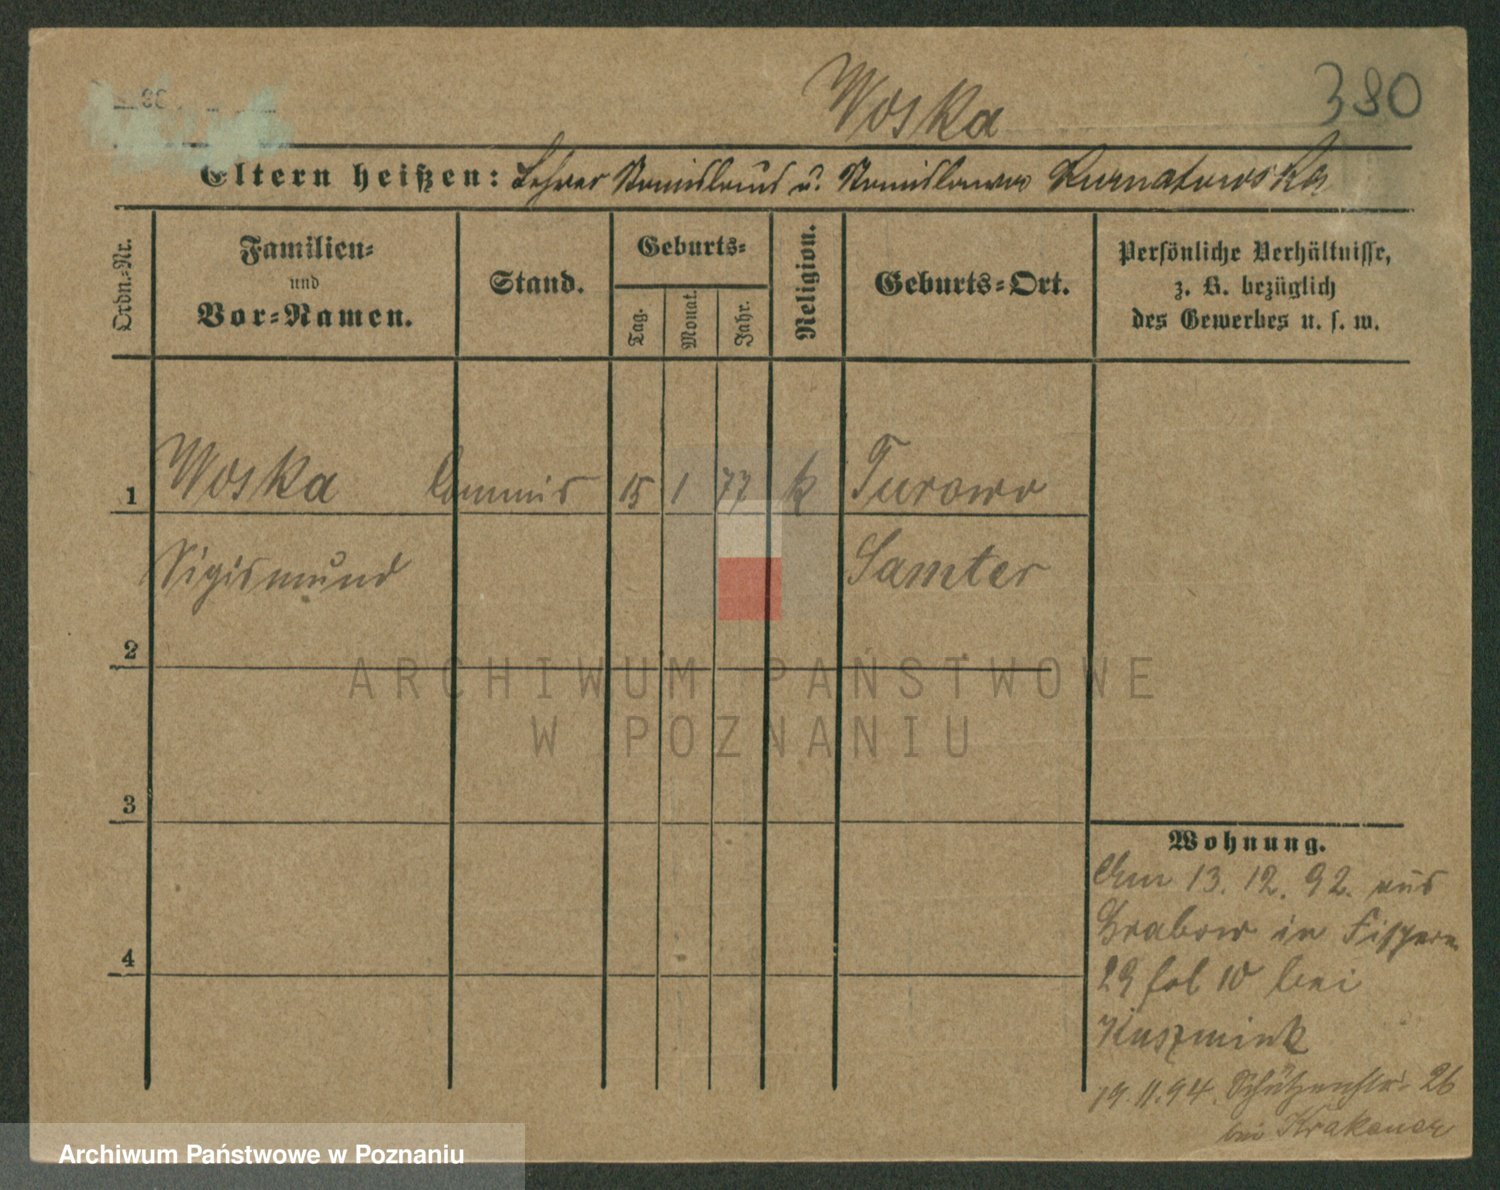 Woska
380
Eltern heißen: Lehrer Stanislaus u. Stanislawa Kurnatowska
Ordn.-Nr.
Familien-
und
Vor-Namen.
Stand.
Geburts-
Tag.
Monat.
Jahr.
Religion.
Geburts-Ort.
Persönliche Verhältnisse,
z. B. bezüglich
des Gewerbes u. s. w.
1 Woska Commis 15 1 77 k Turowo
Sigismund Samter
2
ARCHIWUM PAŃSTWOWE
W POZNANIU
3
Wohnung.
Am 13. 12. 92. aus
Grabow in
4
29 fol 10 bei
19. 11. 94. Schützenstr. 26
bei Krakauer
Archiwum Państwowe w Poznaniu